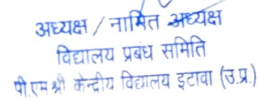 अध्यक्ष / नामित अध्यक्ष
विद्यालय प्रबंध समिति
पी.एम श्री केन्द्रीय विद्यालय इटावा (उ.प्र.)